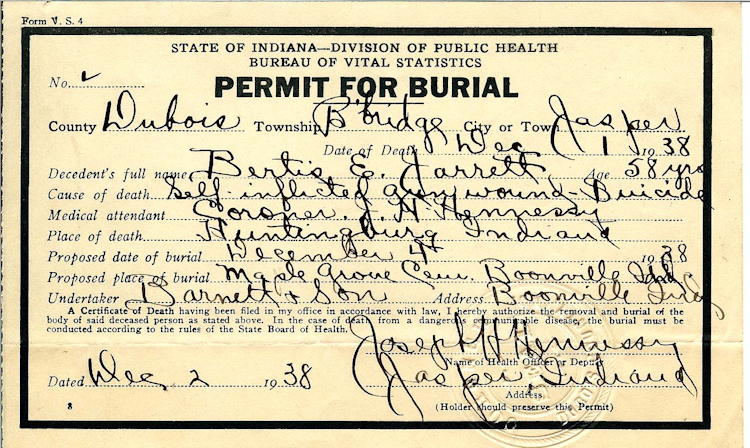 Form V. S. 4
STATE OF INDIANA—DIVISION OF PUBLIC HEALTH
BUREAU OF VITAL STATISTICS
No.
PERMIT FOR BURIAL
County Dubois Township B'bridge City or Town Jasper
Date of Death Dec 1 1938
Decedent's full name Bertis E. Jarrett Age 58 yrs
Cause of death Self-inflicted gun wound-Suicide
Medical attendant Coroner J. H. Hennessy
Place of death Huntingburg Indiana
Proposed date of burial December 4th 1938
Proposed place of burial Maple Grove Cem. Boonville Ind
Undertaker Barnett & Son Address Boonville Ind
A Certificate of Death having been filed in my office in accordance with law, I hereby authorize the removal and burial of the
body of said deceased person as stated above. In the case of death from a dangerous communicable disease the burial must be
conducted according to the rules of the State Board of Health.
Joseph H Hennessy
Name of Health Officer or Deputy
Dated Dec 2 1938 Jasper, Indiana
Address
8 (Holder should preserve this Permit)